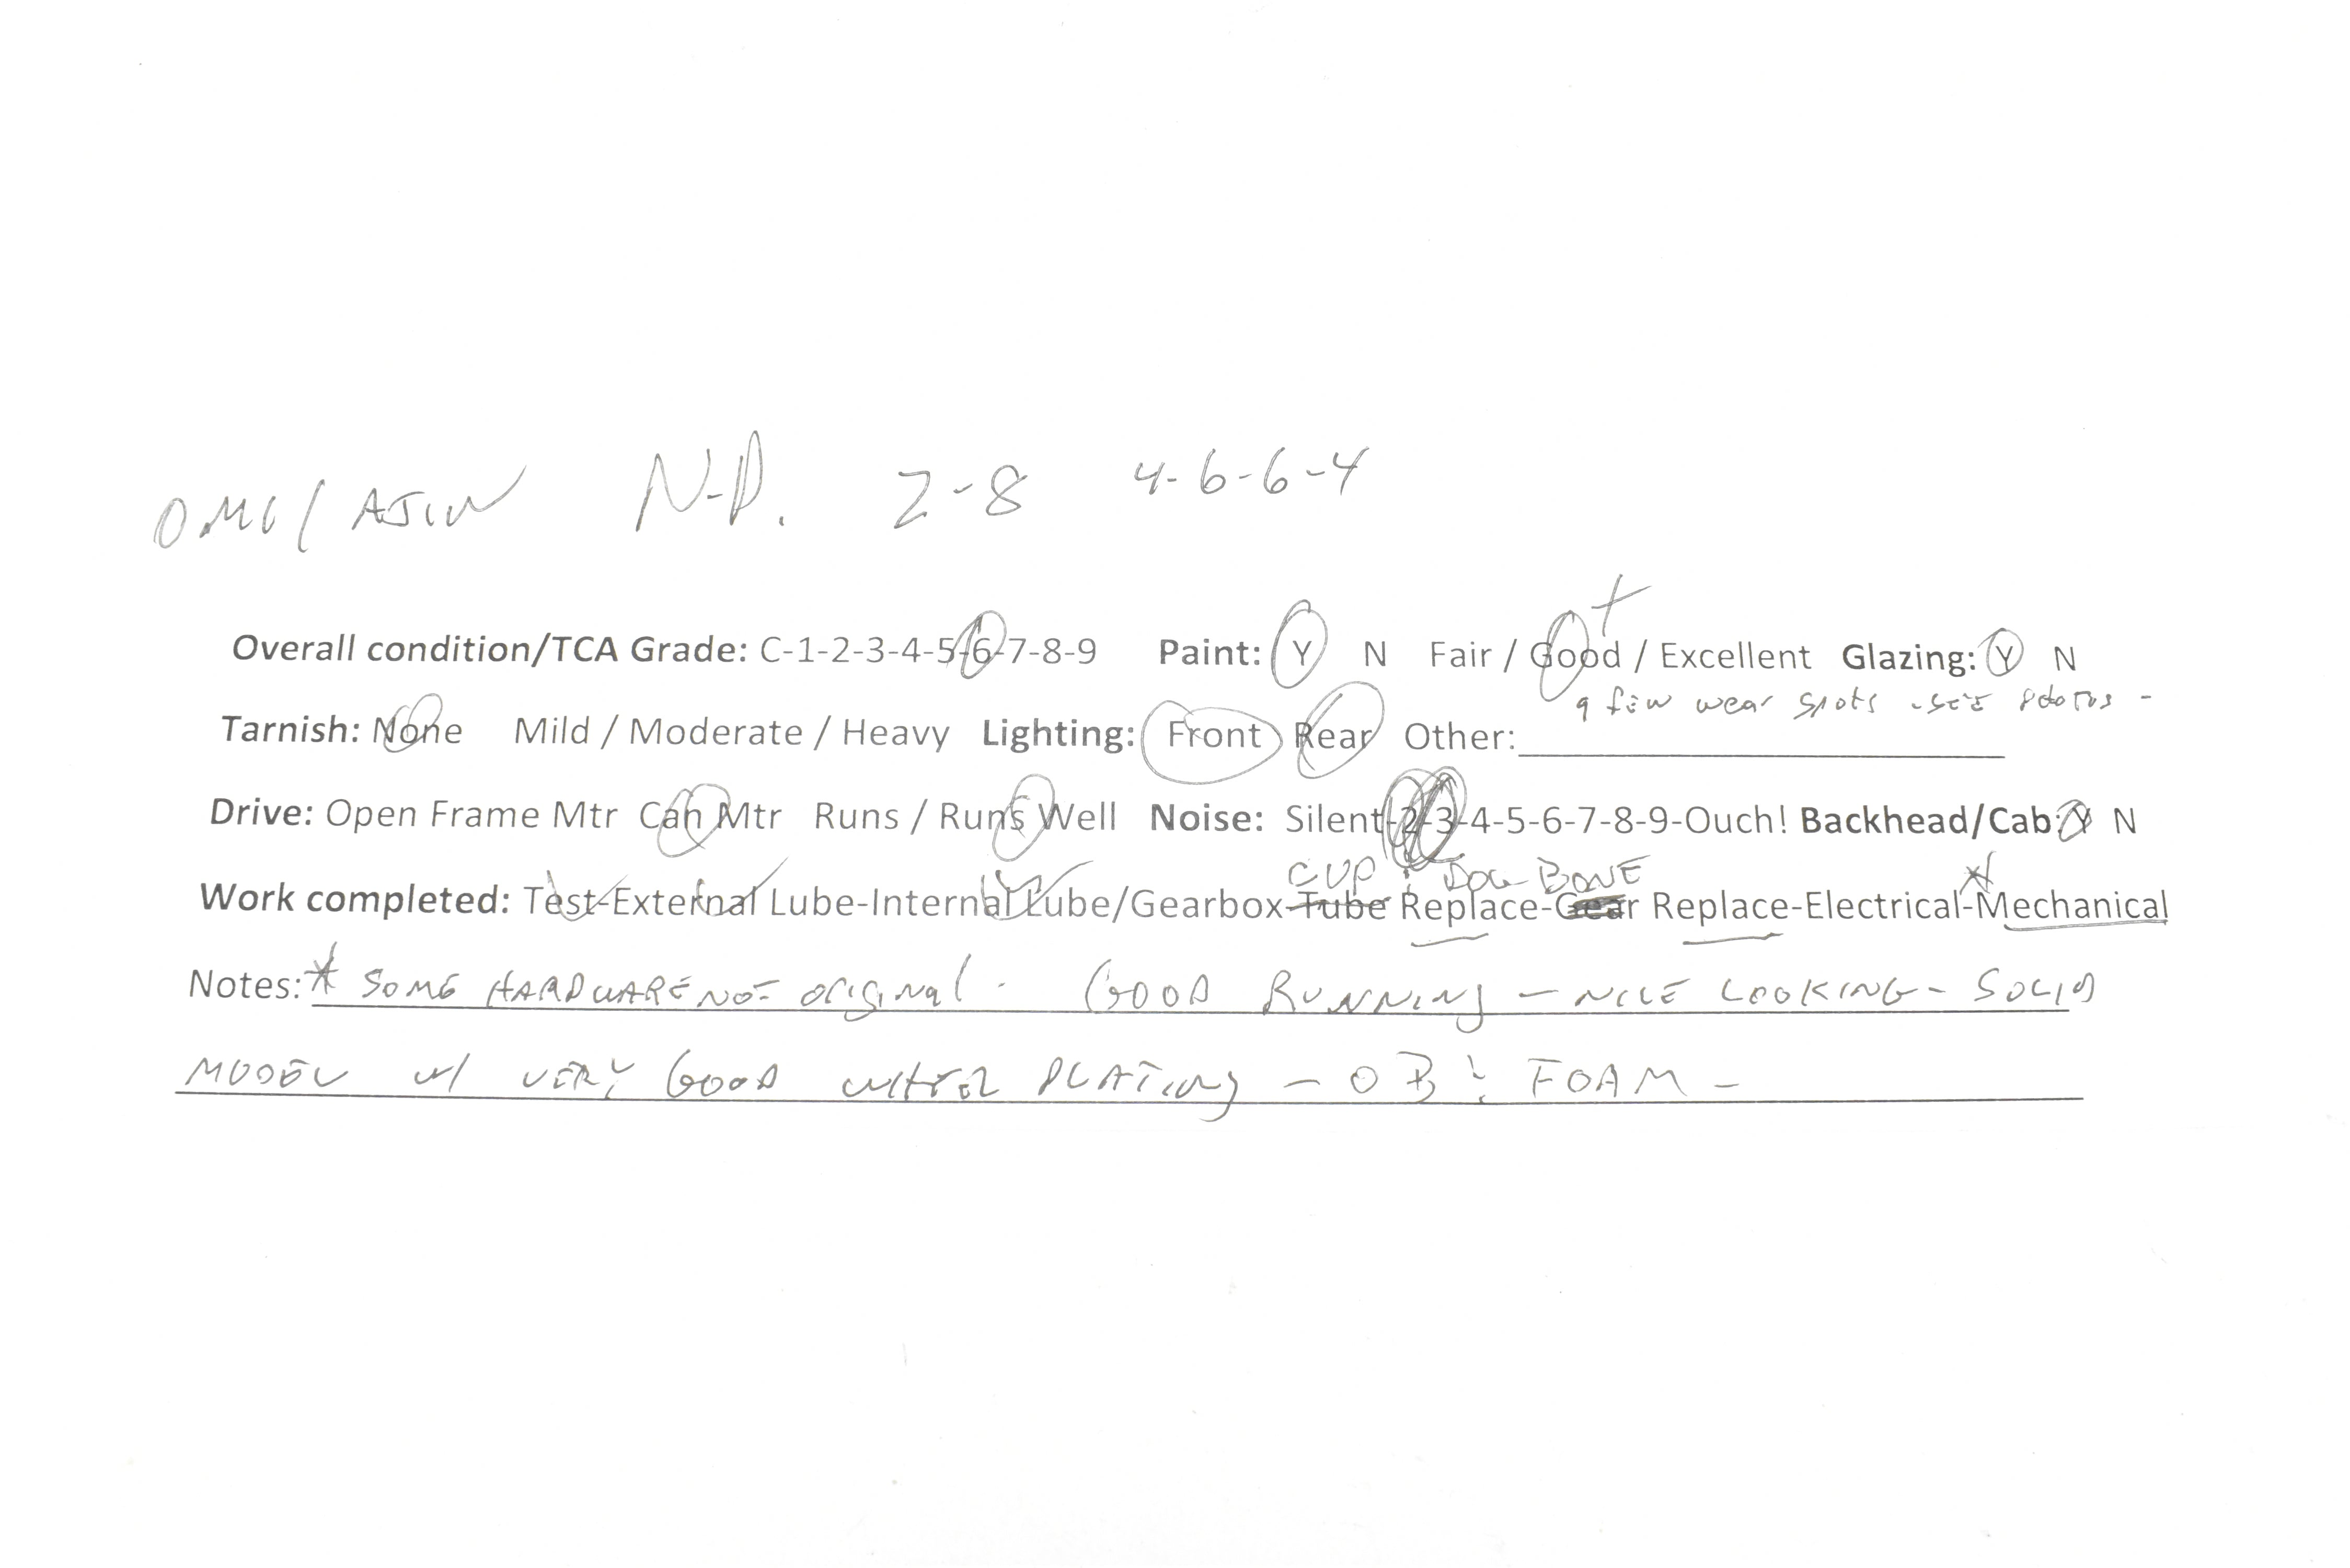 OMI/AJIN N.P. Z-8 4-6-6-4
+
Overall condition/TCA Grade: C-1-2-3-4-5-6-7-8-9 Paint: Y N Fair / Good / Excellent Glazing: Y N
a few wear spots - see photos -
Tarnish: None Mild / Moderate / Heavy Lighting: Front Rear Other:
Drive: Open Frame Mtr Can Mtr Runs / Runs Well Noise: Silent-2-3-4-5-6-7-8-9-Ouch! Backhead/Cab: Y N
CUP & DOG BONE *
Work completed: Test-External Lube-Internal Lube/Gearbox-Tube Replace-Gear Replace-Electrical-Mechanical
Notes: * SOME HARDWARE NOT ORIGINAL. GOOD RUNNING - NICE LOOKING - SOLID
MODEL W/ VERY GOOD WHEEL PLATING - OB & FOAM -